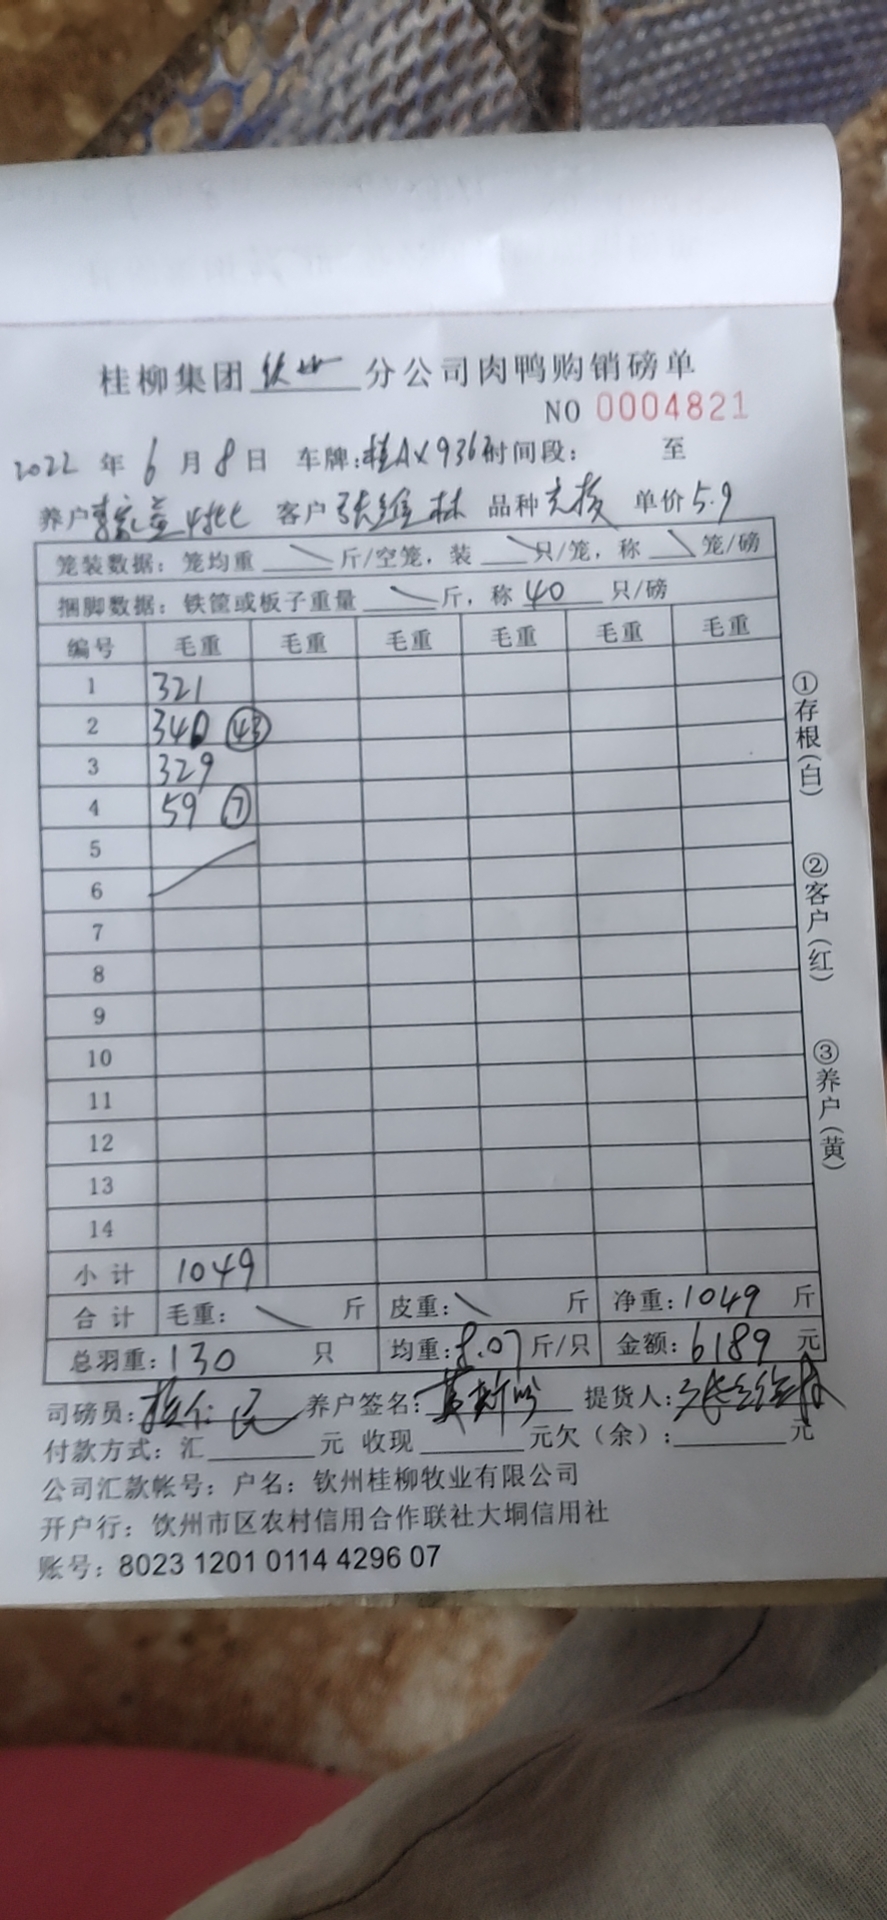 桂柳集团 钦州 分公司肉鸭购销磅单
NO 0004821
2022 年 6 月 8 日 车牌:桂AX936 时间段: 至
养户 4批 客户 张维林 品种 单价 5.9
笼装数据: 笼均重 \ 斤/空笼, 装 \ 只/笼, 称 \ 笼/磅
捆脚数据: 铁筐或板子重量 \ 斤, 称 40 只/磅
编号 毛重 毛重 毛重 毛重 毛重 毛重
1 321
2 340 ㊸
3 329
4 59 ⑦
5
6
7
8
9
10
11
12
13
14
小计 1049
合计 毛重: \ 斤 皮重: \ 斤 净重: 1049 斤
总羽重: 130 只 均重: 8.07 斤/只 金额: 6189 元
司磅员: 养户签名: 提货人: 张维林
付款方式: 汇 元 收现 元欠(余): 元
公司汇款帐号: 户名: 钦州桂柳牧业有限公司
开户行: 钦州市区农村信用合作联社大垌信用社
账号: 8023 1201 0114 4296 07
①存根(白)
②客户(红)
③养户(黄)